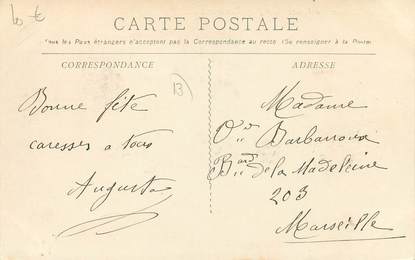 10 €
CARTE POSTALE
Tous les Pays étrangers n'acceptent pas la Correspondance au recto (Se renseigner à la Poste)
CORRESPONDANCE
ADRESSE
13
Bonne fête
caresses a tous
Augusta
Madame
Vve Barbaroux
Bard de la Madeleine
203
Marseille